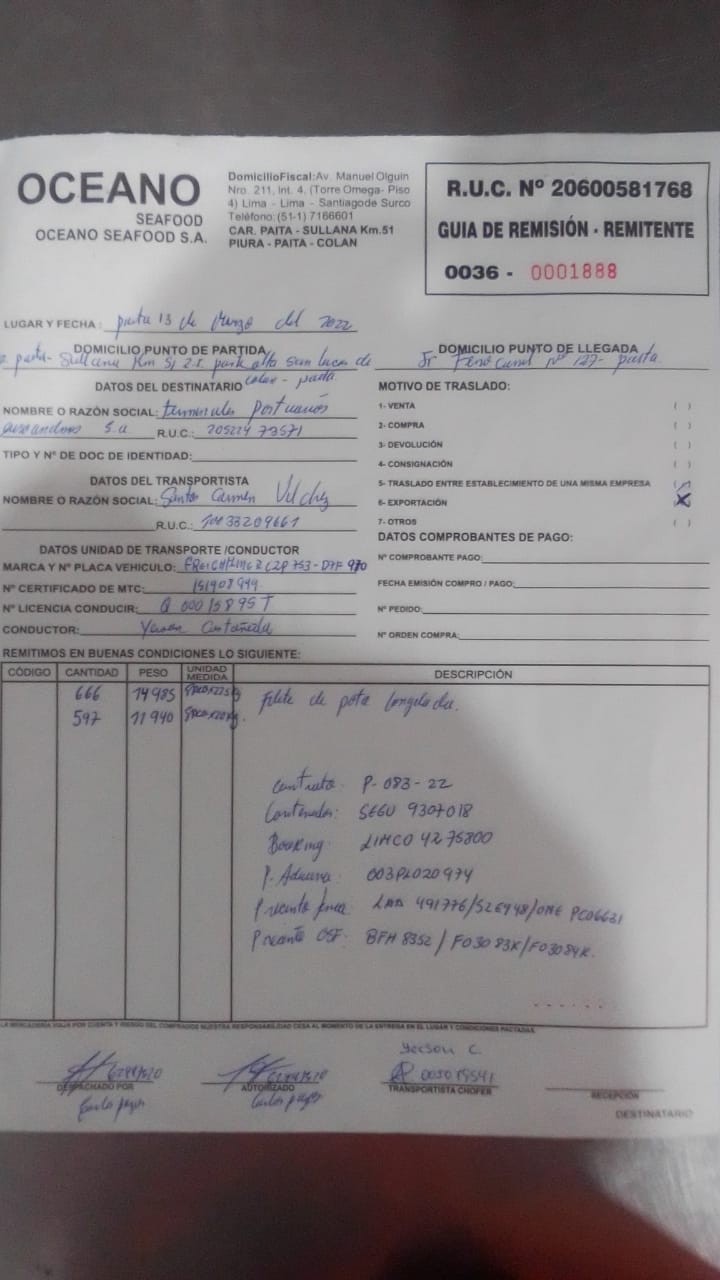 OCEANO
SEAFOOD
OCEANO SEAFOOD S.A.
DomicilioFiscal:Av. Manuel Olguin
Nro. 211, Int. 4, (Torre Omega- Piso
4) Lima - Lima - Santiagode Surco
Teléfono:(51-1) 7166601
CAR. PAITA - SULLANA Km.51
PIURA - PAITA - COLAN
R.U.C. Nº 20600581768
GUIA DE REMISIÓN - REMITENTE
0036 - 0001888
LUGAR Y FECHA : paita 13 de Marzo del 2022
DOMICILIO PUNTO DE PARTIDA
paita- Sullana Km 51 z.I. park alto san lucas de
colan - paita
DOMICILIO PUNTO DE LLEGADA
Jr Ferrocarril Nº 127- paita
DATOS DEL DESTINATARIO
NOMBRE O RAZÓN SOCIAL: terminales Portuarios
euroandinos S.a R.U.C.: 20522473571
TIPO Y Nº DE DOC DE IDENTIDAD:
DATOS DEL TRANSPORTISTA
NOMBRE O RAZÓN SOCIAL: Santos Carmen Vilchez
R.U.C.: 10033209661
DATOS UNIDAD DE TRANSPORTE /CONDUCTOR
MARCA Y Nº PLACA VEHICULO: FREIGHTLINER 753- 970
Nº CERTIFICADO DE MTC: 151908999
Nº LICENCIA CONDUCIR: Q 00015895T
CONDUCTOR: Castañeda
MOTIVO DE TRASLADO:
1- VENTA ( )
2- COMPRA ( )
3- DEVOLUCIÓN ( )
4- CONSIGNACIÓN ( )
5- TRASLADO ENTRE ESTABLECIMIENTO DE UNA MISMA EMPRESA ( )
6- EXPORTACIÓN X
7- OTROS ( )
DATOS COMPROBANTES DE PAGO:
Nº COMPROBANTE PAGO:
FECHA EMISIÓN COMPRO / PAGO:
Nº PEDIDO:
Nº ORDEN COMPRA:
REMITIMOS EN BUENAS CONDICIONES LO SIGUIENTE:
CÓDIGO CANTIDAD PESO UNIDAD MEDIDA DESCRIPCIÓN
666 14985 Filete de pota congelada.
597 11940
Contrato: P-083-22
Contenedor: SEGU 9307018
Booking: LIMCO 4275800
P. Aduana: 003PL020974
Precinto linea: LAA 491776/526948/ONE PC06631
Precinto OSF: BFH 8352 / F03083K/F03084K.
LA MERCADERIA VIAJA POR CUENTA Y RIESGO DEL COMPRADOR NUESTRA RESPONSABILIDAD CESA AL MOMENTO DE LA ENTREGA EN EL LUGAR Y CONDICIONES PACTADAS.
DESPACHADO POR
AUTORIZADO
Yerson C.
TRANSPORTISTA CHOFER
RECEPCIÓN
DESTINATARIO